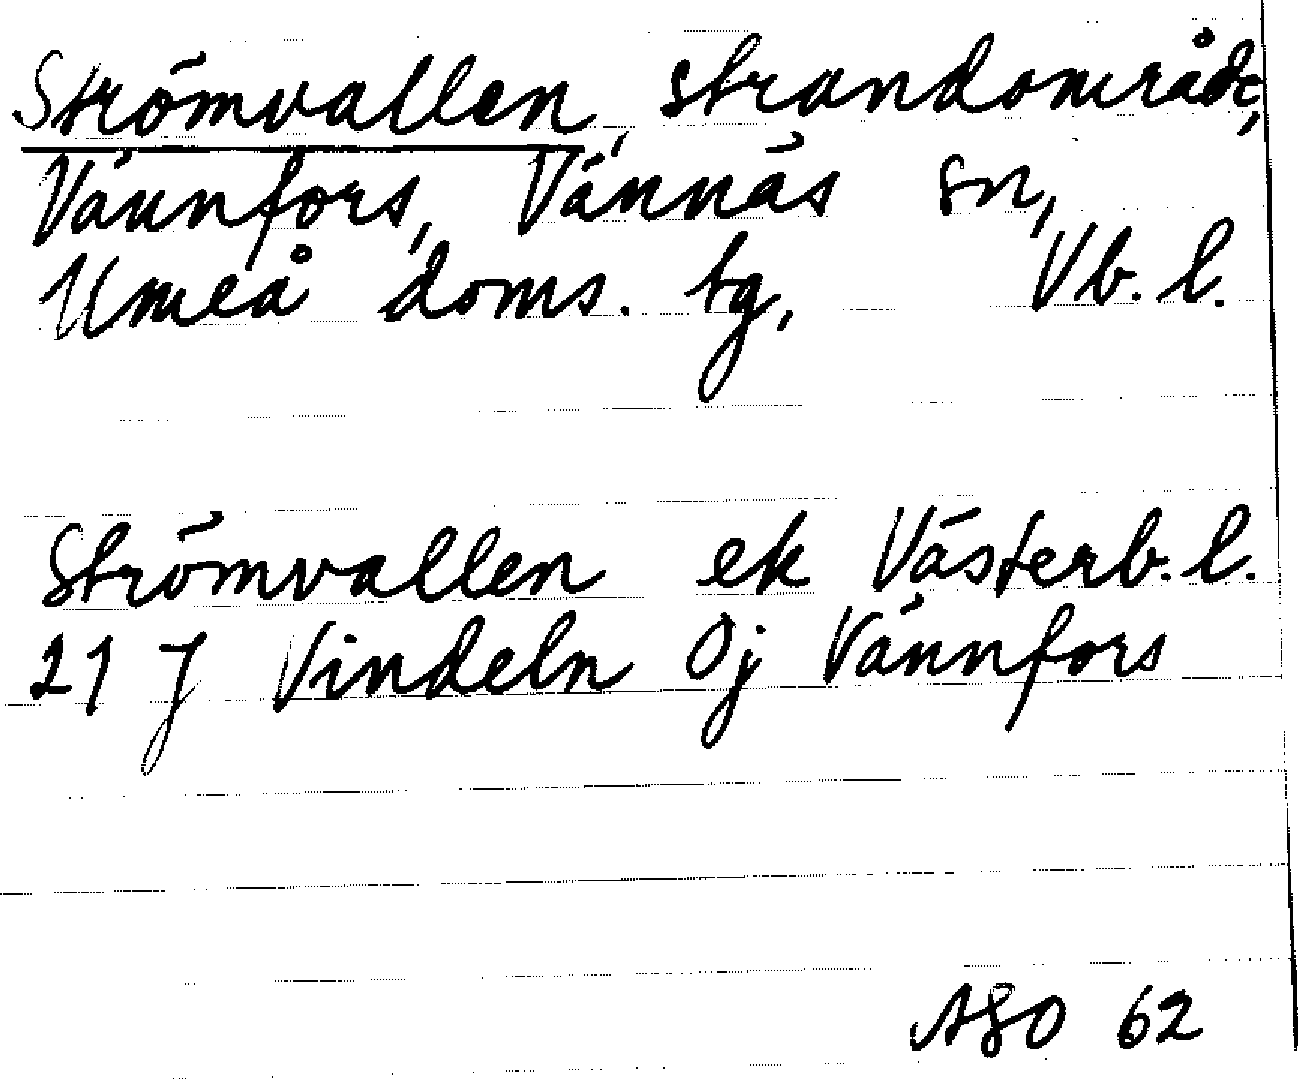 Strömvallen, strandområde,
Vännfors, Vännäs sn,
Umeå doms. tg, Vb. l.
Strömvallen ek Västerb. l.
21 J Vindeln Oj Vännfors
ASO 62